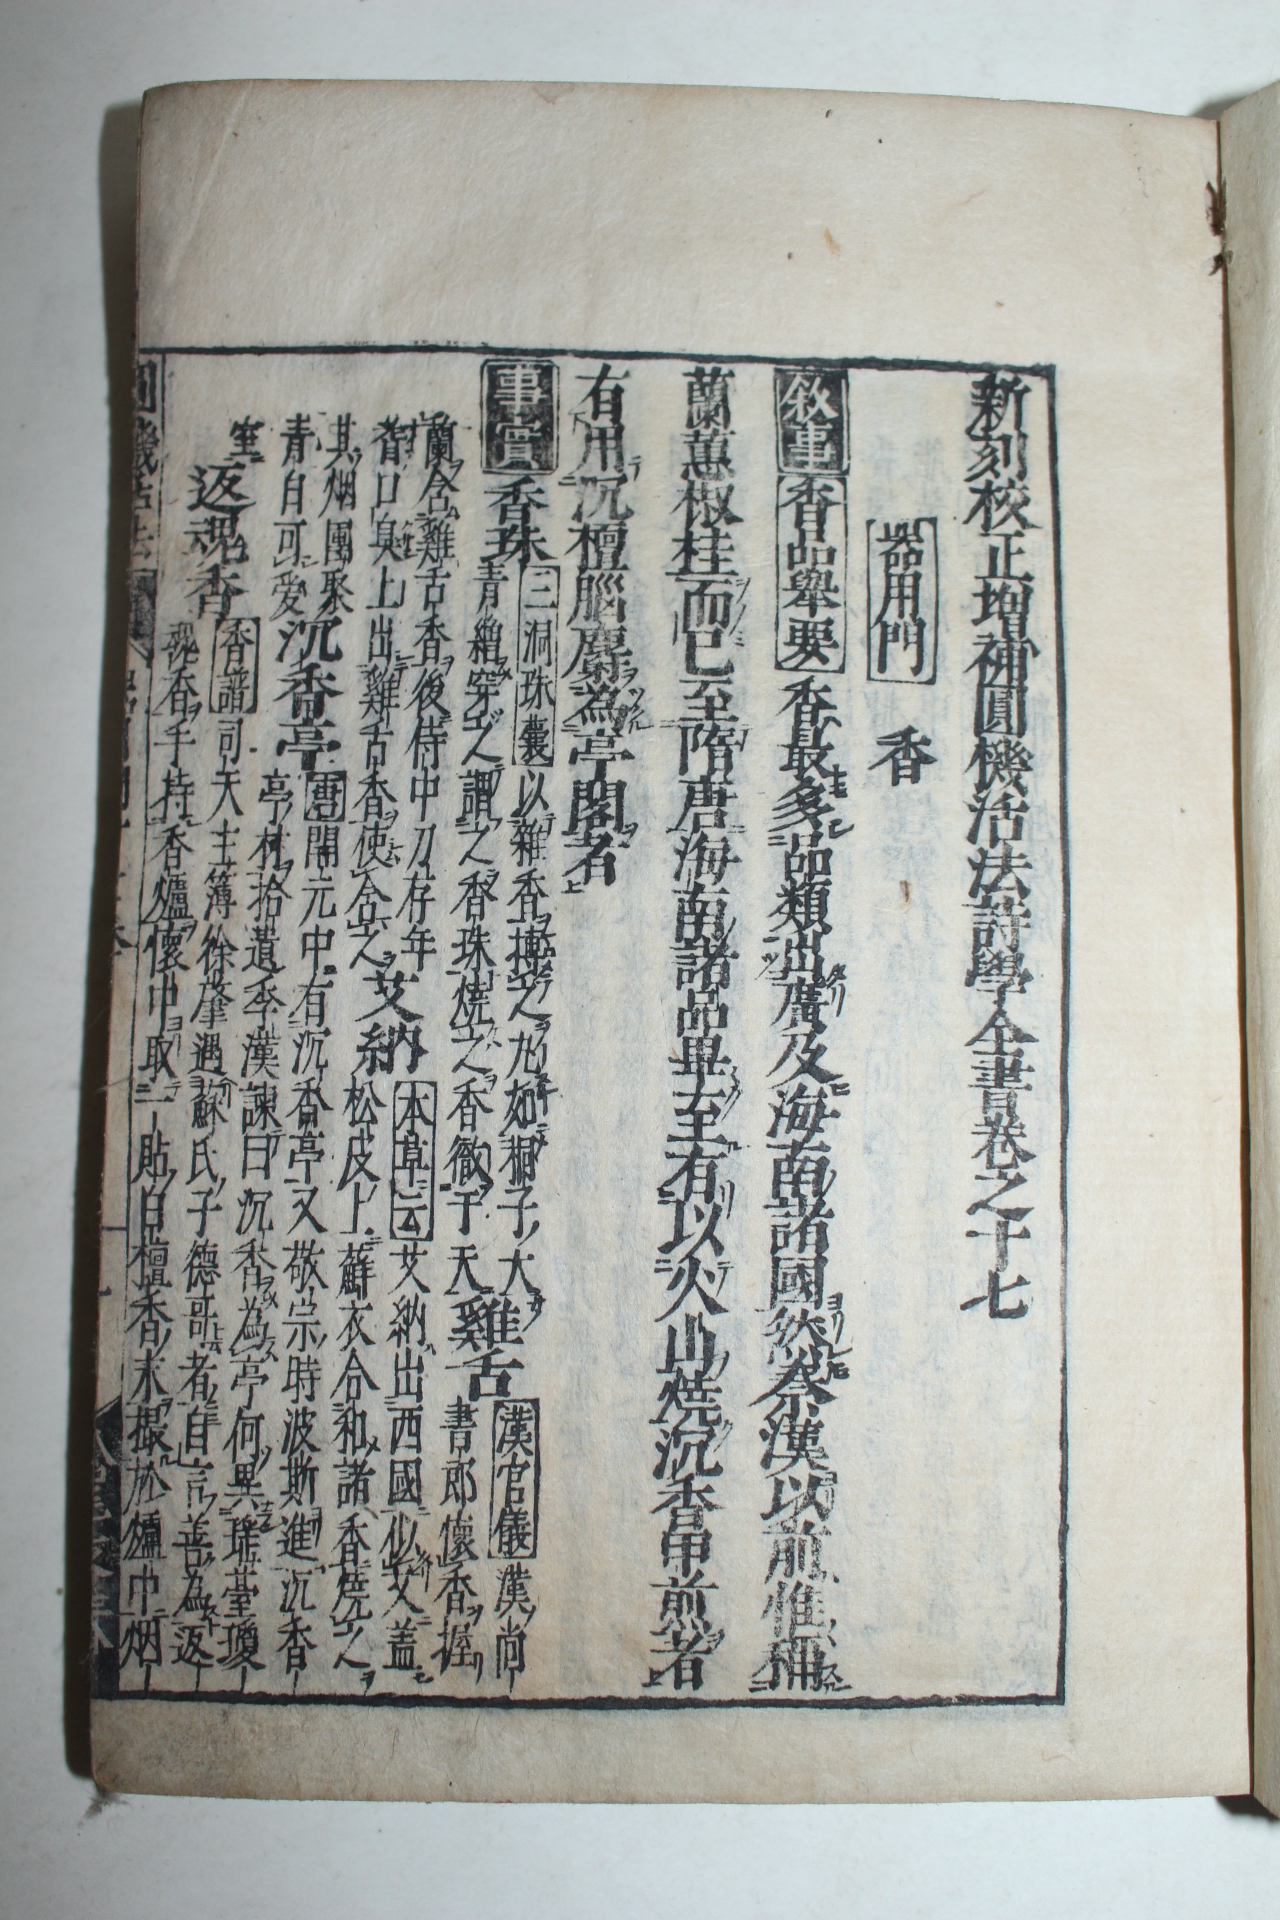 新刻校正增補圓機活法詩學全書卷之十七
器用門　香
敘事　香品舉要　香最多品類出廣及海南諸國然秦漢以前惟稱
蘭蕙椒桂而已至隋唐海南諸品畢至有以火山燒沉香甲煎者
有用沉檀腦麝為亭閣者
事實　香珠　三洞珠囊以雜香搏之丸如桐子大
青繒穿之謂之香珠燒之香徹于天　雞舌　漢官儀漢尚
書郎懷香握
蘭含雞舌香後侍中刀存年
耆口臭上出雞舌香使含之　艾納　本草云艾納出西國似艾蓋
松皮上蘚衣合和諸香燒之
其烟團聚
青白可愛　沉香亭　唐開元中有沉香亭又敬宗時波斯進沉香
亭材拾遺李漢諫曰沉香為亭何異瑤臺瓊
室　返魂香　香譜司天主簿徐肇遇蘇氏子德哥者自言善為返
魂香手持香爐懷中取一貼白檀香末撮於爐中烟